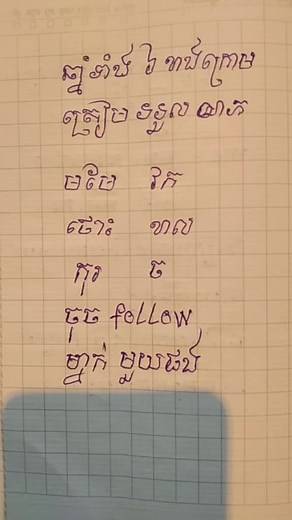 ឆ្នាំទាំង ៦ ខាងក្រោម
ត្រៀម ទទួល លាភ
មមែ វក
ថោះ ខាល
កុរ ច
ចុច follow
ម្នាក់ មួយផង